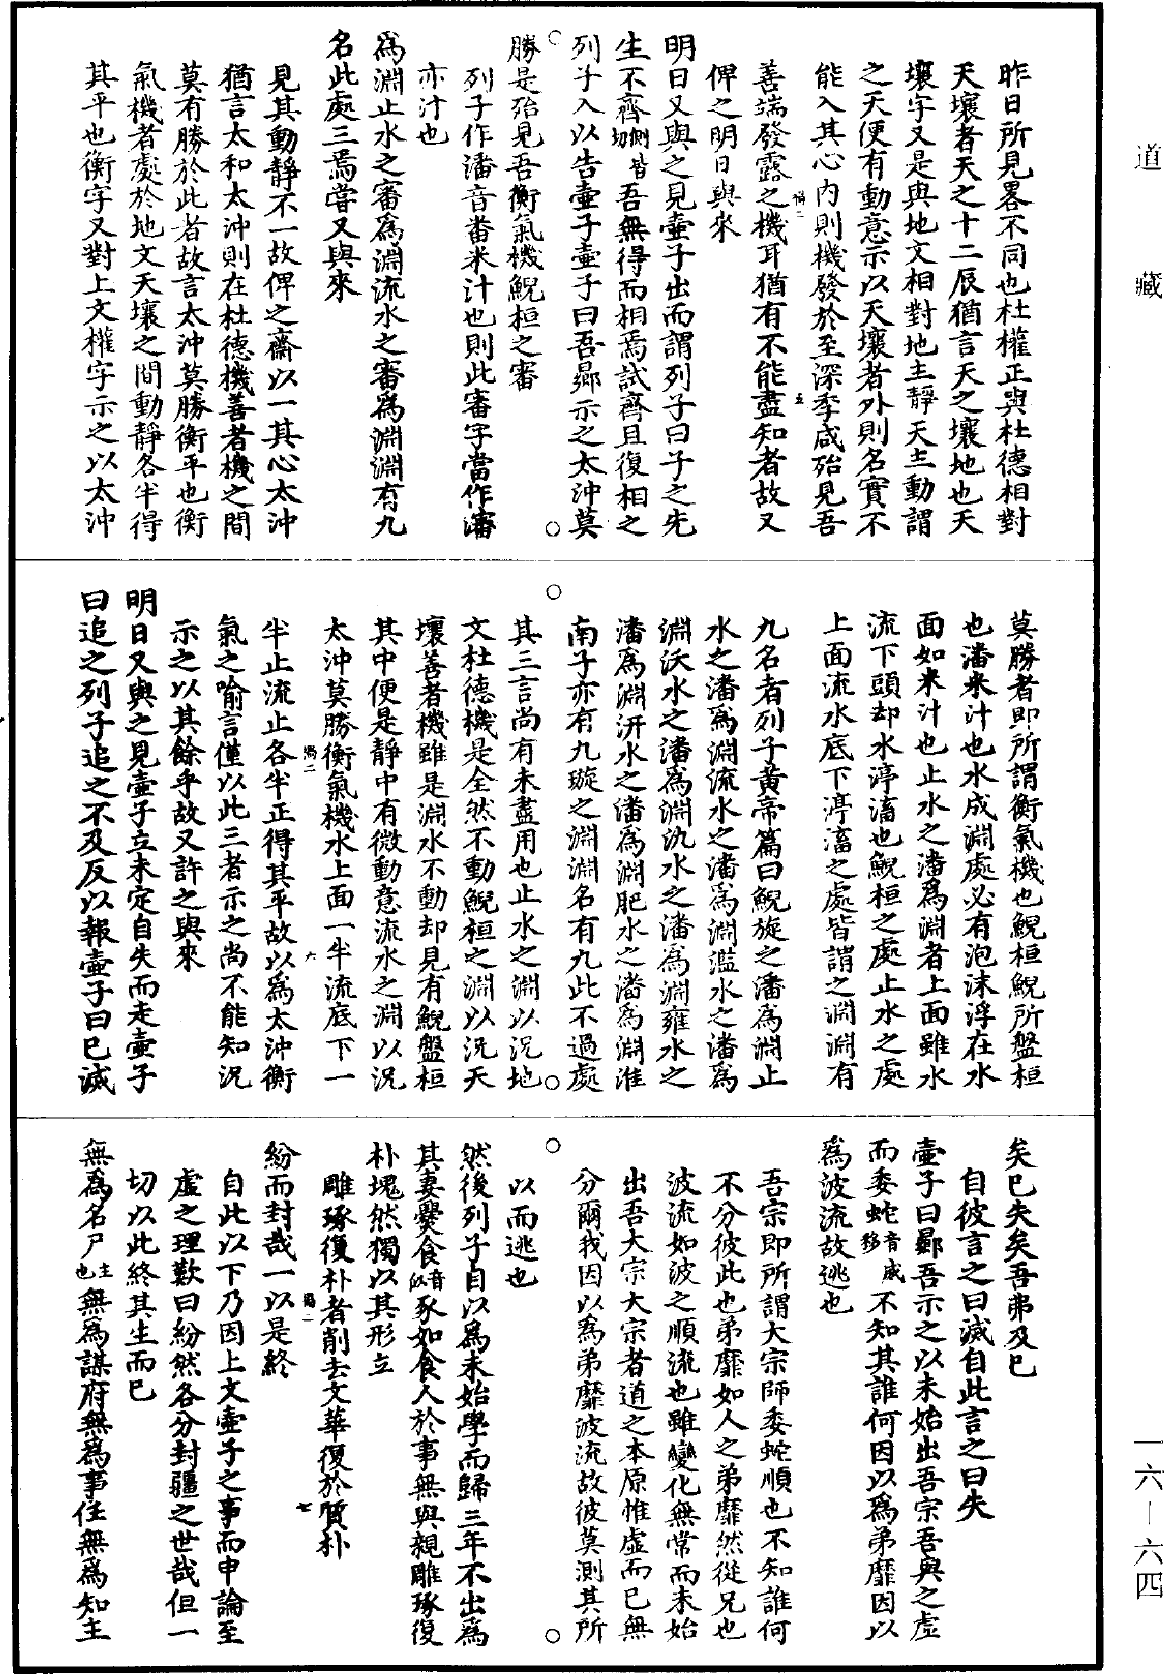 道藏
昨日所見畧不同也杜權正與杜德相對
天壤者天之十二辰猶言天之壤地也天
壤字又是與地文相對地主靜天主動謂
之天便有動意示以天壤者外則名實不
能入其心內則機發於至深季咸殆見吾
善端發露之機耳猶有不能盡知者故又
俾之明日與來
明日又與之見壺子出而謂列子曰子之先
生不齊側皆切吾無得而相焉試齊且復相之
列子入以告壺子壺子曰吾曏示之太沖莫
勝是殆見吾衡氣機鯢桓之審
列子作潘音番米汁也則此審字當作瀋
亦汁也
為淵止水之審為淵流水之審為淵淵有九
名此處三焉嘗又與來
見其動靜不一故俾之齋以一其心太沖
猶言太和太沖則在杜德機善者機之間
莫有勝於此者故言太沖莫勝衡平也衡
氣機者處於地文天壤之間動靜各半得
其平也衡字又對上文權字示之以太沖
莫勝者即所謂衡氣機也鯢桓鯢所盤桓
也潘米汁也水成淵處必有泡沫浮在水
面如米汁也止水之潘為淵者上面雖水
流下頭却水渟滀也鯢桓之處止水之處
上面流水底下渟滀之處皆謂之淵淵有
九名者列子黃帝篇曰鯢旋之潘為淵止
水之潘為淵流水之潘為淵濫水之潘為
淵沃水之潘為淵氿水之潘為淵雍水之
潘為淵汧水之潘為淵肥水之潘為淵淮
南子亦有九璇之淵淵名有九此不過處
其三言尚有未盡用也止水之淵以況地
文杜德機是全然不動鯢桓之淵以況天
壤善者機雖是淵水不動却見有鯢盤桓
其中便是靜中有微動意流水之淵以況
太沖莫勝衡氣機水上面一半流底下一
半止流止各半正得其平故以為太沖衡
氣之喻言僅以此三者示之尚不能知況
示之以其餘乎故又許之與來
明日又與之見壺子立未定自失而走壺子
曰追之列子追之不及反以報壺子曰已滅
矣已失矣吾弗及已
自彼言之曰滅自此言之曰失
壺子曰曏吾示之以未始出吾宗吾與之虛
而委蛇音威移不知其誰何因以為弟靡因以
為波流故逃也
吾宗即所謂大宗師委蛇順也不知誰何
不分彼此也弟靡如人之弟靡然從兄也
波流如波之順流也雖變化無常而未始
出吾大宗大宗者道之本原惟虛而已無
分爾我因以為弟靡波流故彼莫測其所
以而逃也
然後列子自以為未始學而歸三年不出為
其妻爨食音似豕如食人於事無與親雕琢復
朴塊然獨以其形立
雕琢復朴者削去文華復於質朴
紛而封哉一以是終
自此以下乃因上文壺子之事而申論至
虛之理歎曰紛然各分封疆之世哉但一
切以此終其生而已
無為名尸主也無為謀府無為事任無為知主
一六—六四